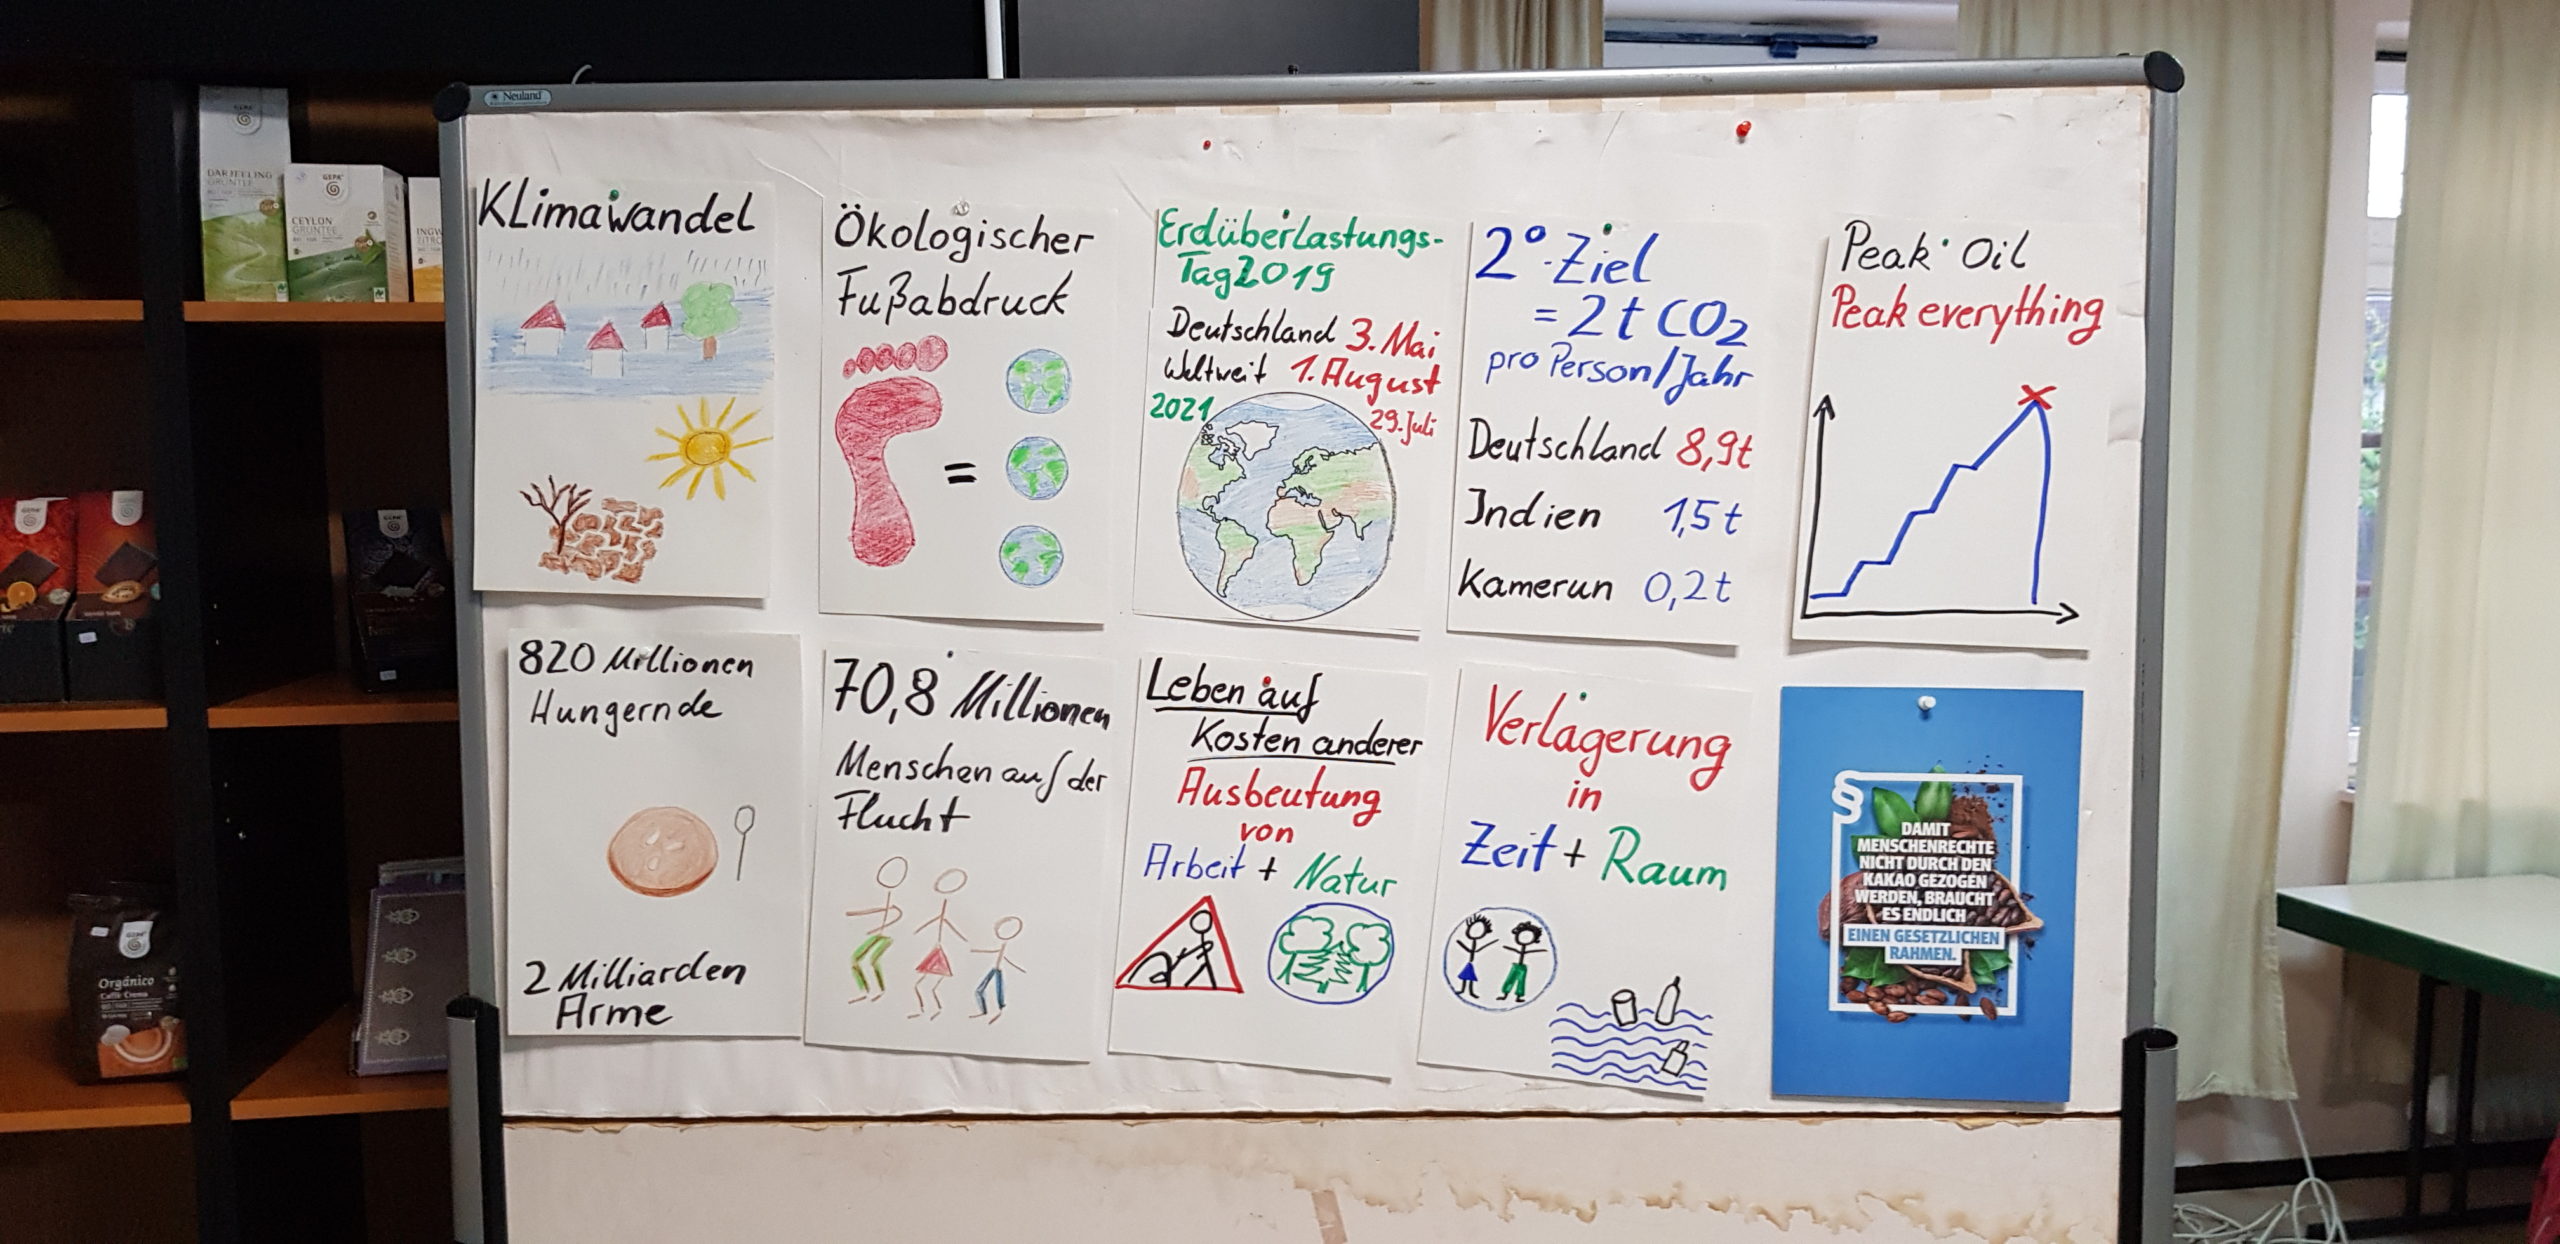 Neuland
Klimawandel
Ökologischer
Fußabdruck
=
Erdüberlastungs-
Tag 2019
Deutschland 3. Mai
Weltweit 1. August
2021 29. Juli
2°-Ziel
= 2 t CO2
pro Person/Jahr
Deutschland 8,9t
Indien 1,5 t
Kamerun 0,2 t
Peak Oil
Peak everything
820 Millionen
Hungernde
2 Milliarden
Arme
70,8 Millionen
Menschen auf der
Flucht
Leben auf
Kosten anderer
Ausbeutung
von
Arbeit + Natur
Verlagerung
in
Zeit + Raum
§
DAMIT
MENSCHENRECHTE
NICHT DURCH DEN
KAKAO GEZOGEN
WERDEN, BRAUCHT
ES ENDLICH
EINEN GESETZLICHEN
RAHMEN.
GEPA
DARJEELING
GRÜNTEE
GEPA
CEYLON
GRÜNTEE
INGW
ZITRO
GEPA
GEPA
GEPA
Orgánico
Caffè Crema